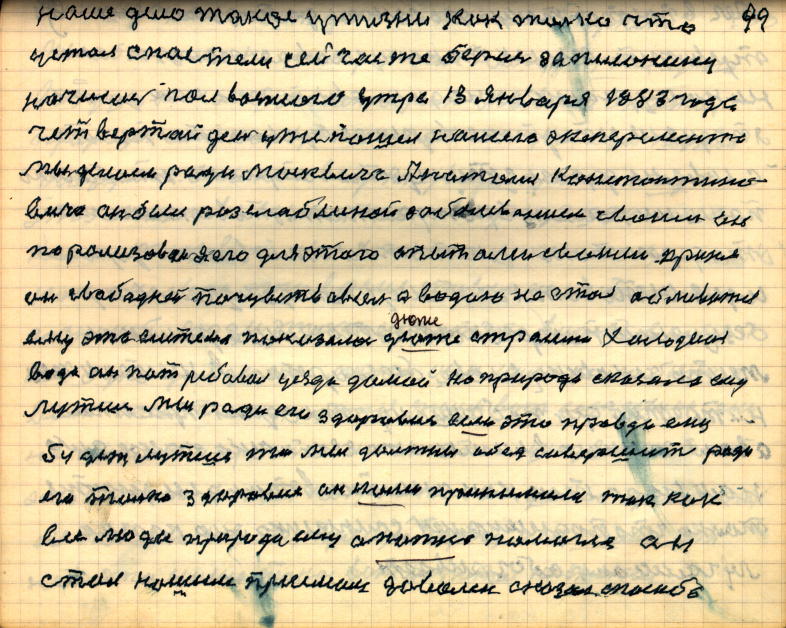 наше дело такое у жизни как толко что 99
устал спас тели сей час же берус за писонину
начинаю пол восмого утра 13 января 1983 года
чет вертай ден уже пошел нашего эксперемента
мы делаем ради москвича Анатолия Константино
вича он был розслабленой заболиванием своим он
паролизован его для этого опытами своими принял
он свабадней почувствовал а водою не стал обливатся
ему это сителем показалос дюже дюже страшно Холодная
вода он пот ребовал уезда домой но природа сказала ему
лутше мы ради его здоровия если это правда ему
будет лутше то мы должны обед соверщит ради
его толко здоровия он нами принимался так как
все люди природа ему охотно помогла он
стал нашим приемам доволен сказал спасибо